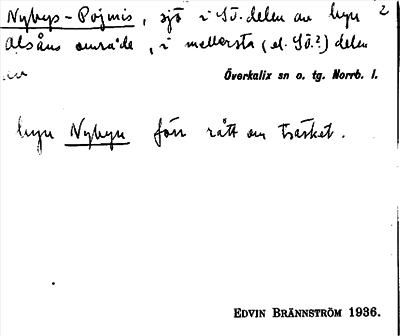 Nybys-Pojmis, sjö i SÖ. delen av byn 2
Alsåns område, i mellersta (el. SÖ.?) delen
av
Överkalix sn o. tg. Norrb. l.
byn Nybyn förr rätt om träsket.
EDVIN BRÄNNSTRÖM 1936.